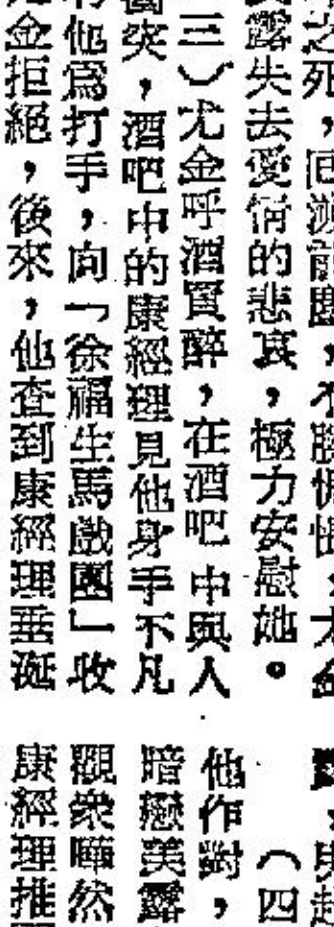 之死，回溯前塵，不勝
露失去愛情的悲哀，極力安慰她。
三）尤金呼酒買醉，在酒吧中與人
衝突，酒吧中的康經理見他身手不凡
他爲打手，向「徐福生馬戲團」收
金拒絕，後來，他查到康經理垂涎
露，
（四
他作對，
暗戀美露
觀衆嘩然
康經理推